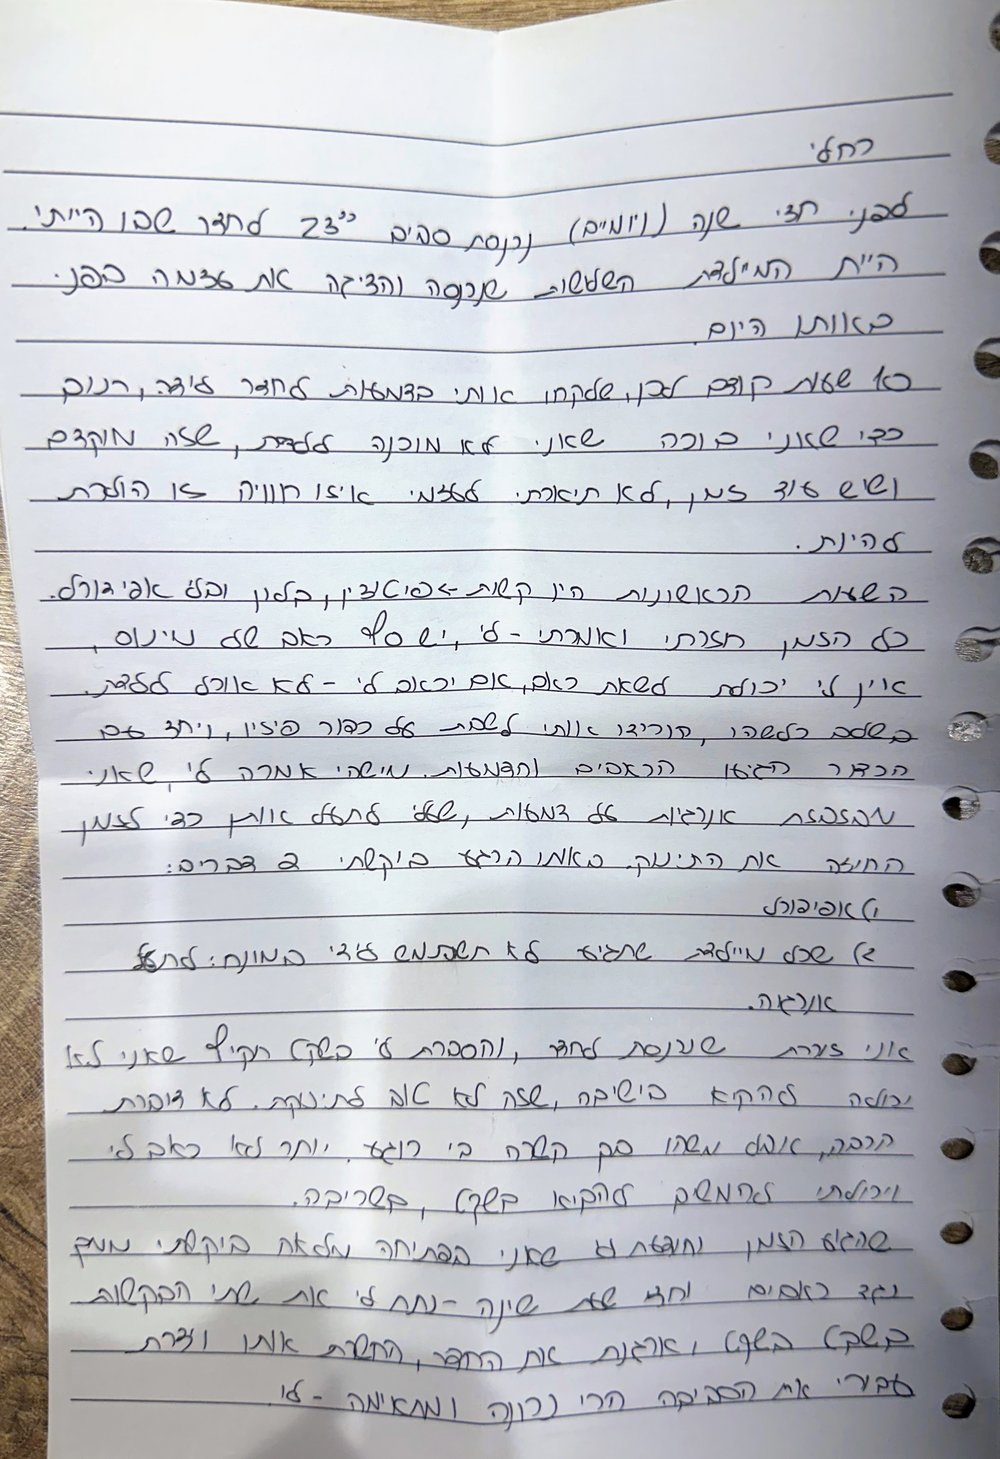 רחלי
לפני חצי שנה (ויומיים) נכנסת סביב 23:00 לחדר שבו הייתי.
היית המיילדת השלישית שנכנסה והציגה את עצמה בפני
באותו היום.
כמה שעות קודם לכן, שלקחו אותי בדמעות לחדר לידה,
כדי שאני בוכה שאני לא מוכנה ללדת, שזה מוקדם
ושיש עוד זמן, לא תיארתי לעצמי איזו חוויה זו הולכת
להיות.
השעות הראשונות היו קשות -> פיטוצין, בלון ובלי אפידורל.
כל הזמן חזרתי ואמרתי - לי, יש סף כאב של מינוס,
אין לי יכולת לשאת כאב, אם יכאב לי - לא אוכל ללדת.
בשלב כלשהו, הורידו אותי לשבת על כדור פיזיו, ויחד עם
הכדור הגיעו הכאבים והדמעות. מישהי אמרה לי, שאני
מבזבזת אנרגיות על דמעות, שעלי לתעל אותן כדי לזמן
החוצה את התינוק. באותו הרגע ביקשתי 2 דברים:
1) אפידורל
2) שכל מיילדת שתגיע לא תשתמש לידי במונח: לתעל
אנרגיה.
אני זוכרת שנכנסת לחדר, והסברת לי בשקט תקיף שאני לא
יכולה להקיא בישיבה, שזה לא טוב לתינוקת. לא דיברת
הרבה, אבל משהו בך השרה בי רוגע. יותר לא כאב לי
ויכולתי להמשיך להקיא בשקט, בשכיבה.
שהגיע הזמן שאני בפתיחה מלאה ביקשתי ממך
נגד כאבים וחצי שעת שינה - נתת לי את שתי הבקשות
בשקט בשקט, ארגנת את החדר, החשכת אותו ויצרת
עבורי את הסביבה הכי נכונה ומתאימה - לי.